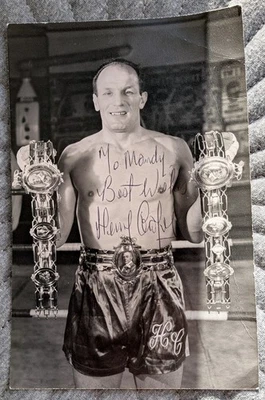 To Mandy
Best Wishes
Henry Cooper
HC